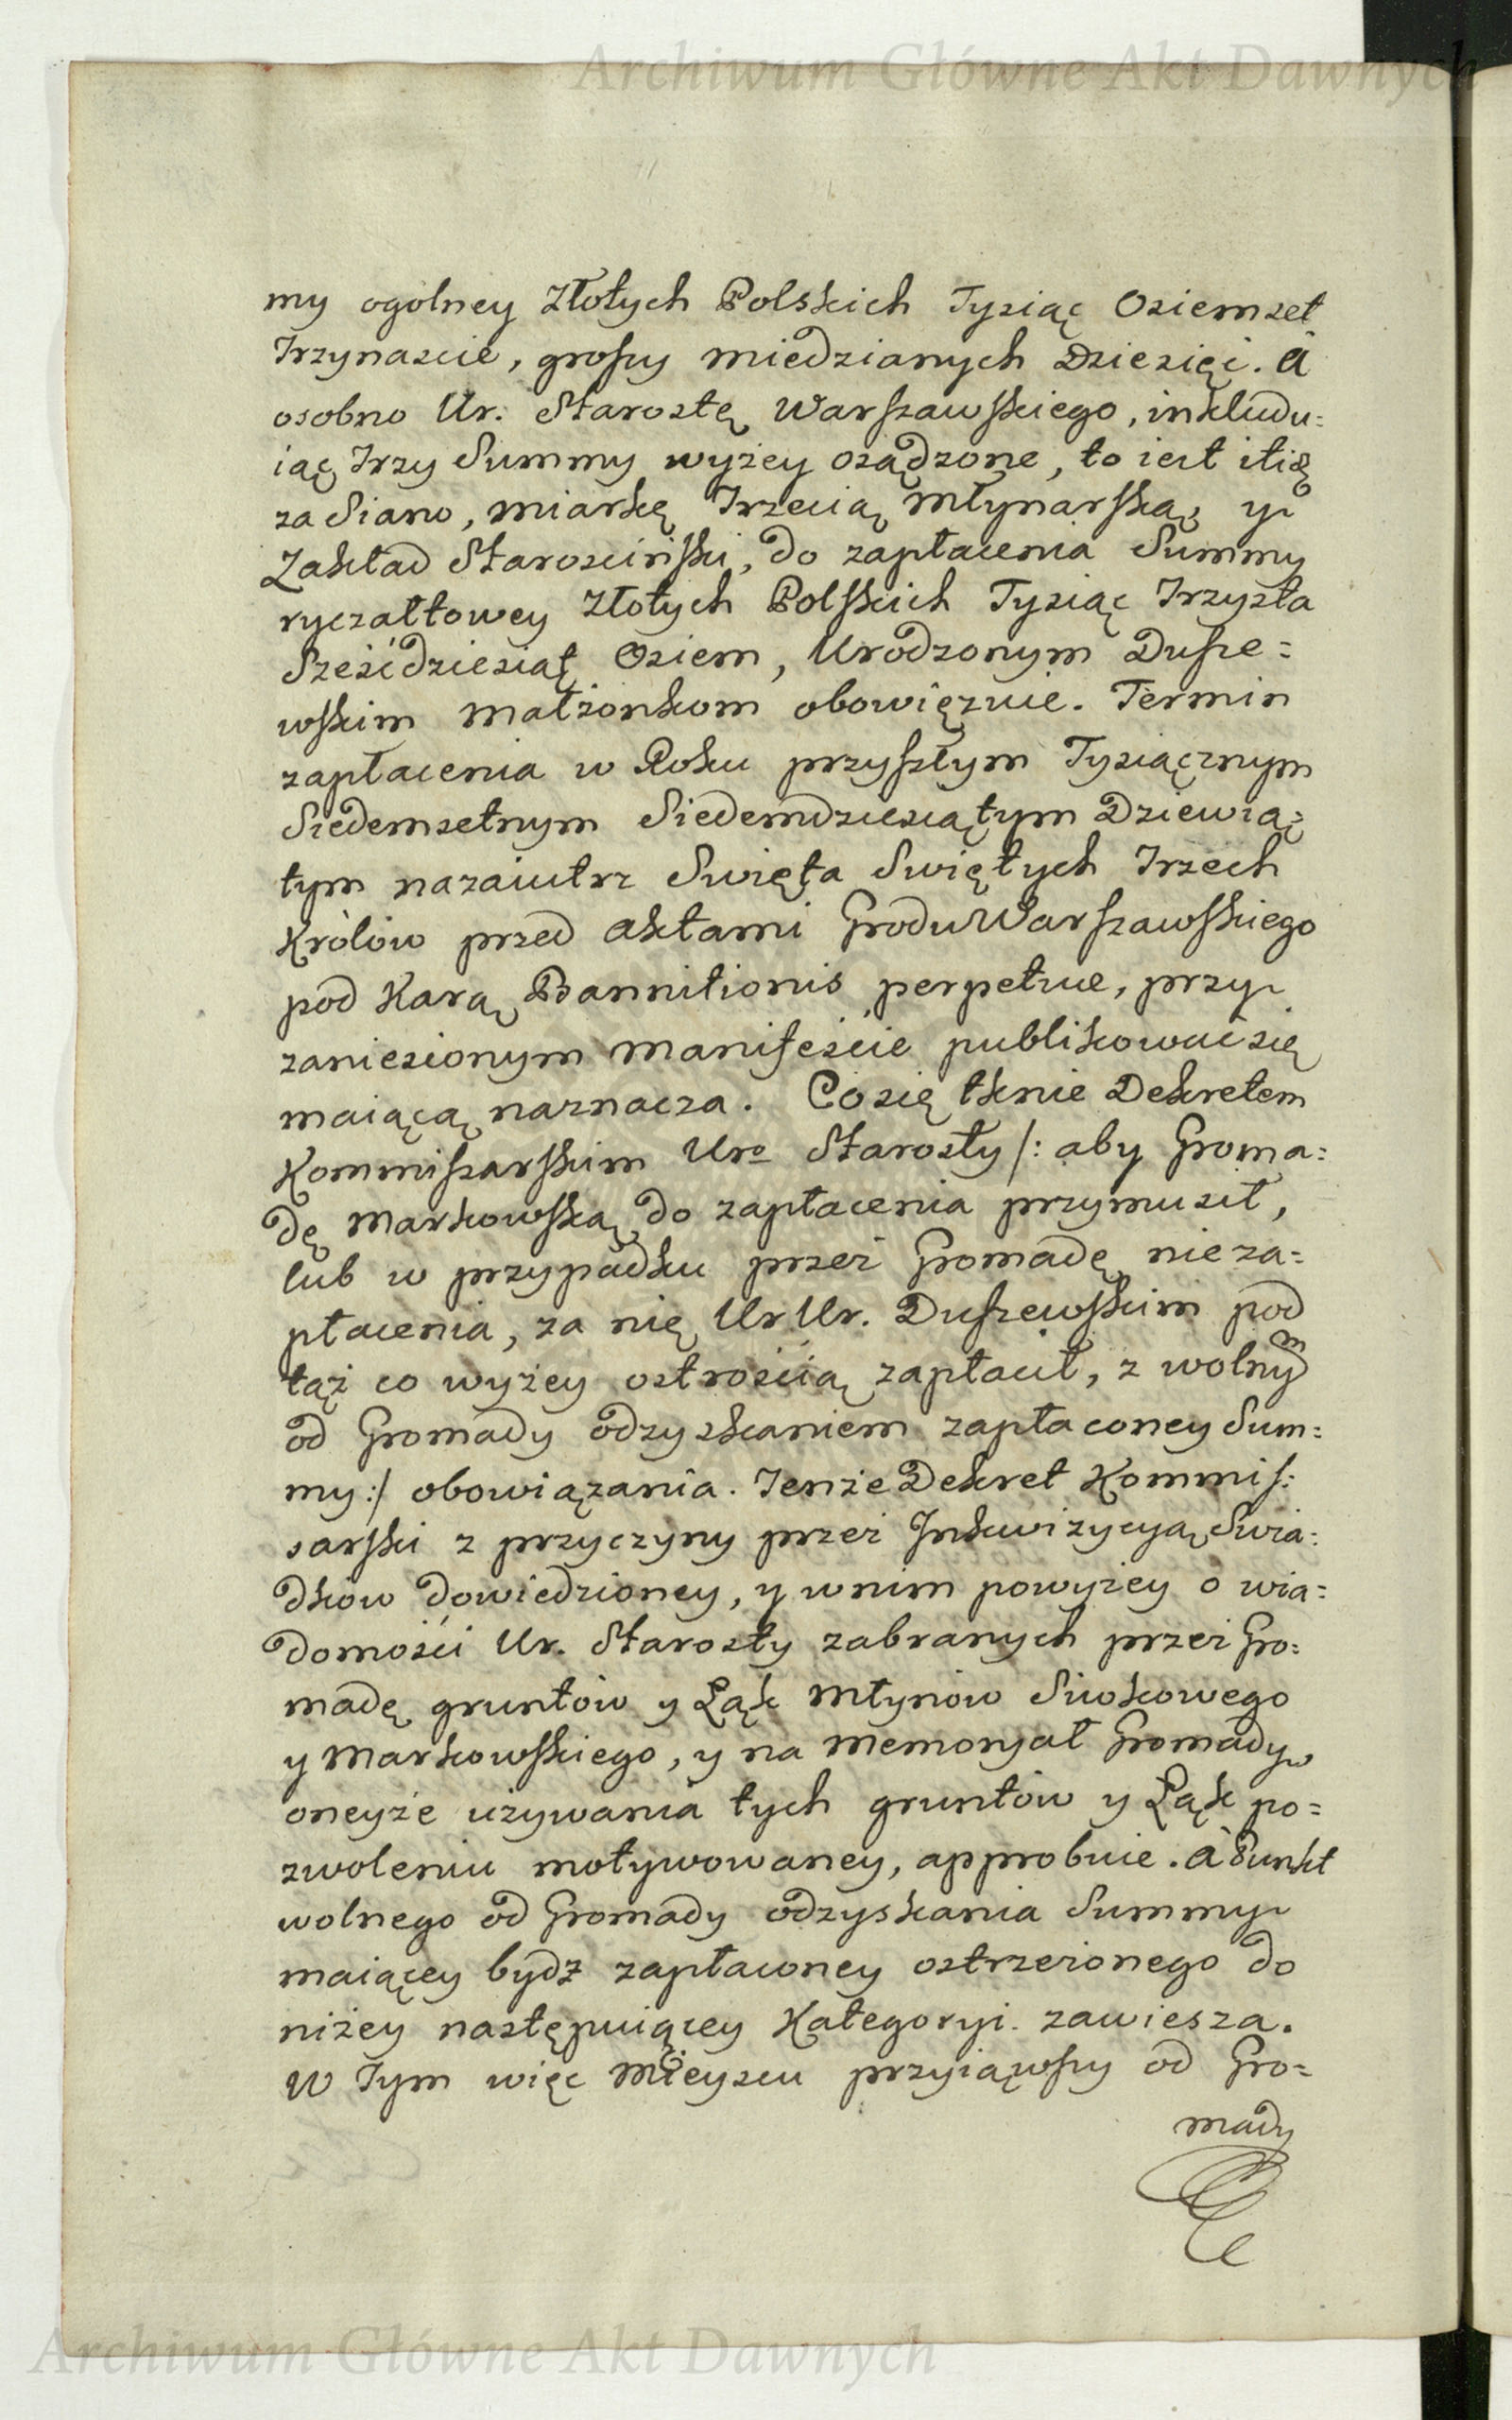 Archiwum Główne Akt Dawnych
my ogolney Złotych Polskich Tysiąc Osiemset
Trzynascie, groszy miedzianych Dziesięć. A
osobno Ur. Starostę Warszawskiego, inkludu=
iąc Trzy Summy wyżey osądzone, to iest
za Siano, miarkę Trzecią Młynarską, y
Zakład Starosciński, do zapłacenia Summy
ryczałtowey Złotych Polskich Tysiąc Trzysta
Sześćdziesiąt Osiem, Urodzonym Dusze=
wskim małżonkom obowięzuie. Termin
zapłacenia w Roku przyszłym Tysiącznym
Siedemsetnym Siedemdziesiątym Dziewią=
tym nazaiutrz Swięta Swiętych Trzech
Królów przed Aktami Grodu Warszawskiego
pod Karą Bannitionis perpetuæ, przy
zaniesionym manifeście publikować się
maiącą naznacza. Co się tknie Dekretem
Kommissarskim Uro Starosty /: aby Groma=
dę Markowską do zapłacenia przymusił,
lub w przypadku przez Gromadę nieza=
płacenia, za nię Ur Ur. Duszewskim pod
tąż co wyżey ostrością zapłacił, z wolnym
od Gromady odzyskaniem zapłaconey Sum=
my :/ obowiązania. Tenże Dekret Kommis=
sarski z przyczyny przez Inkwizycyą Swia=
dków dowiedzioney, y w nim powyżey o wia=
domości Ur. Starosty zabranych przez Gro=
madę gruntów y Łąk Młynów Siwkowego
y Markowskiego, y na memoryał Gromady
oneyże używania tych gruntów y Łąk po=
zwoleniu motywowaney, approbuie. A Punkt
wolnego od Gromady odzyskania Summy
maiącey bydź zapłaconey ostrzeżonego do
niżey następuiącey Kategoryi zawiesza.
W Tym więc Mieyscu przyiąwszy od Gro=
mady
Archiwum Główne Akt Dawnych